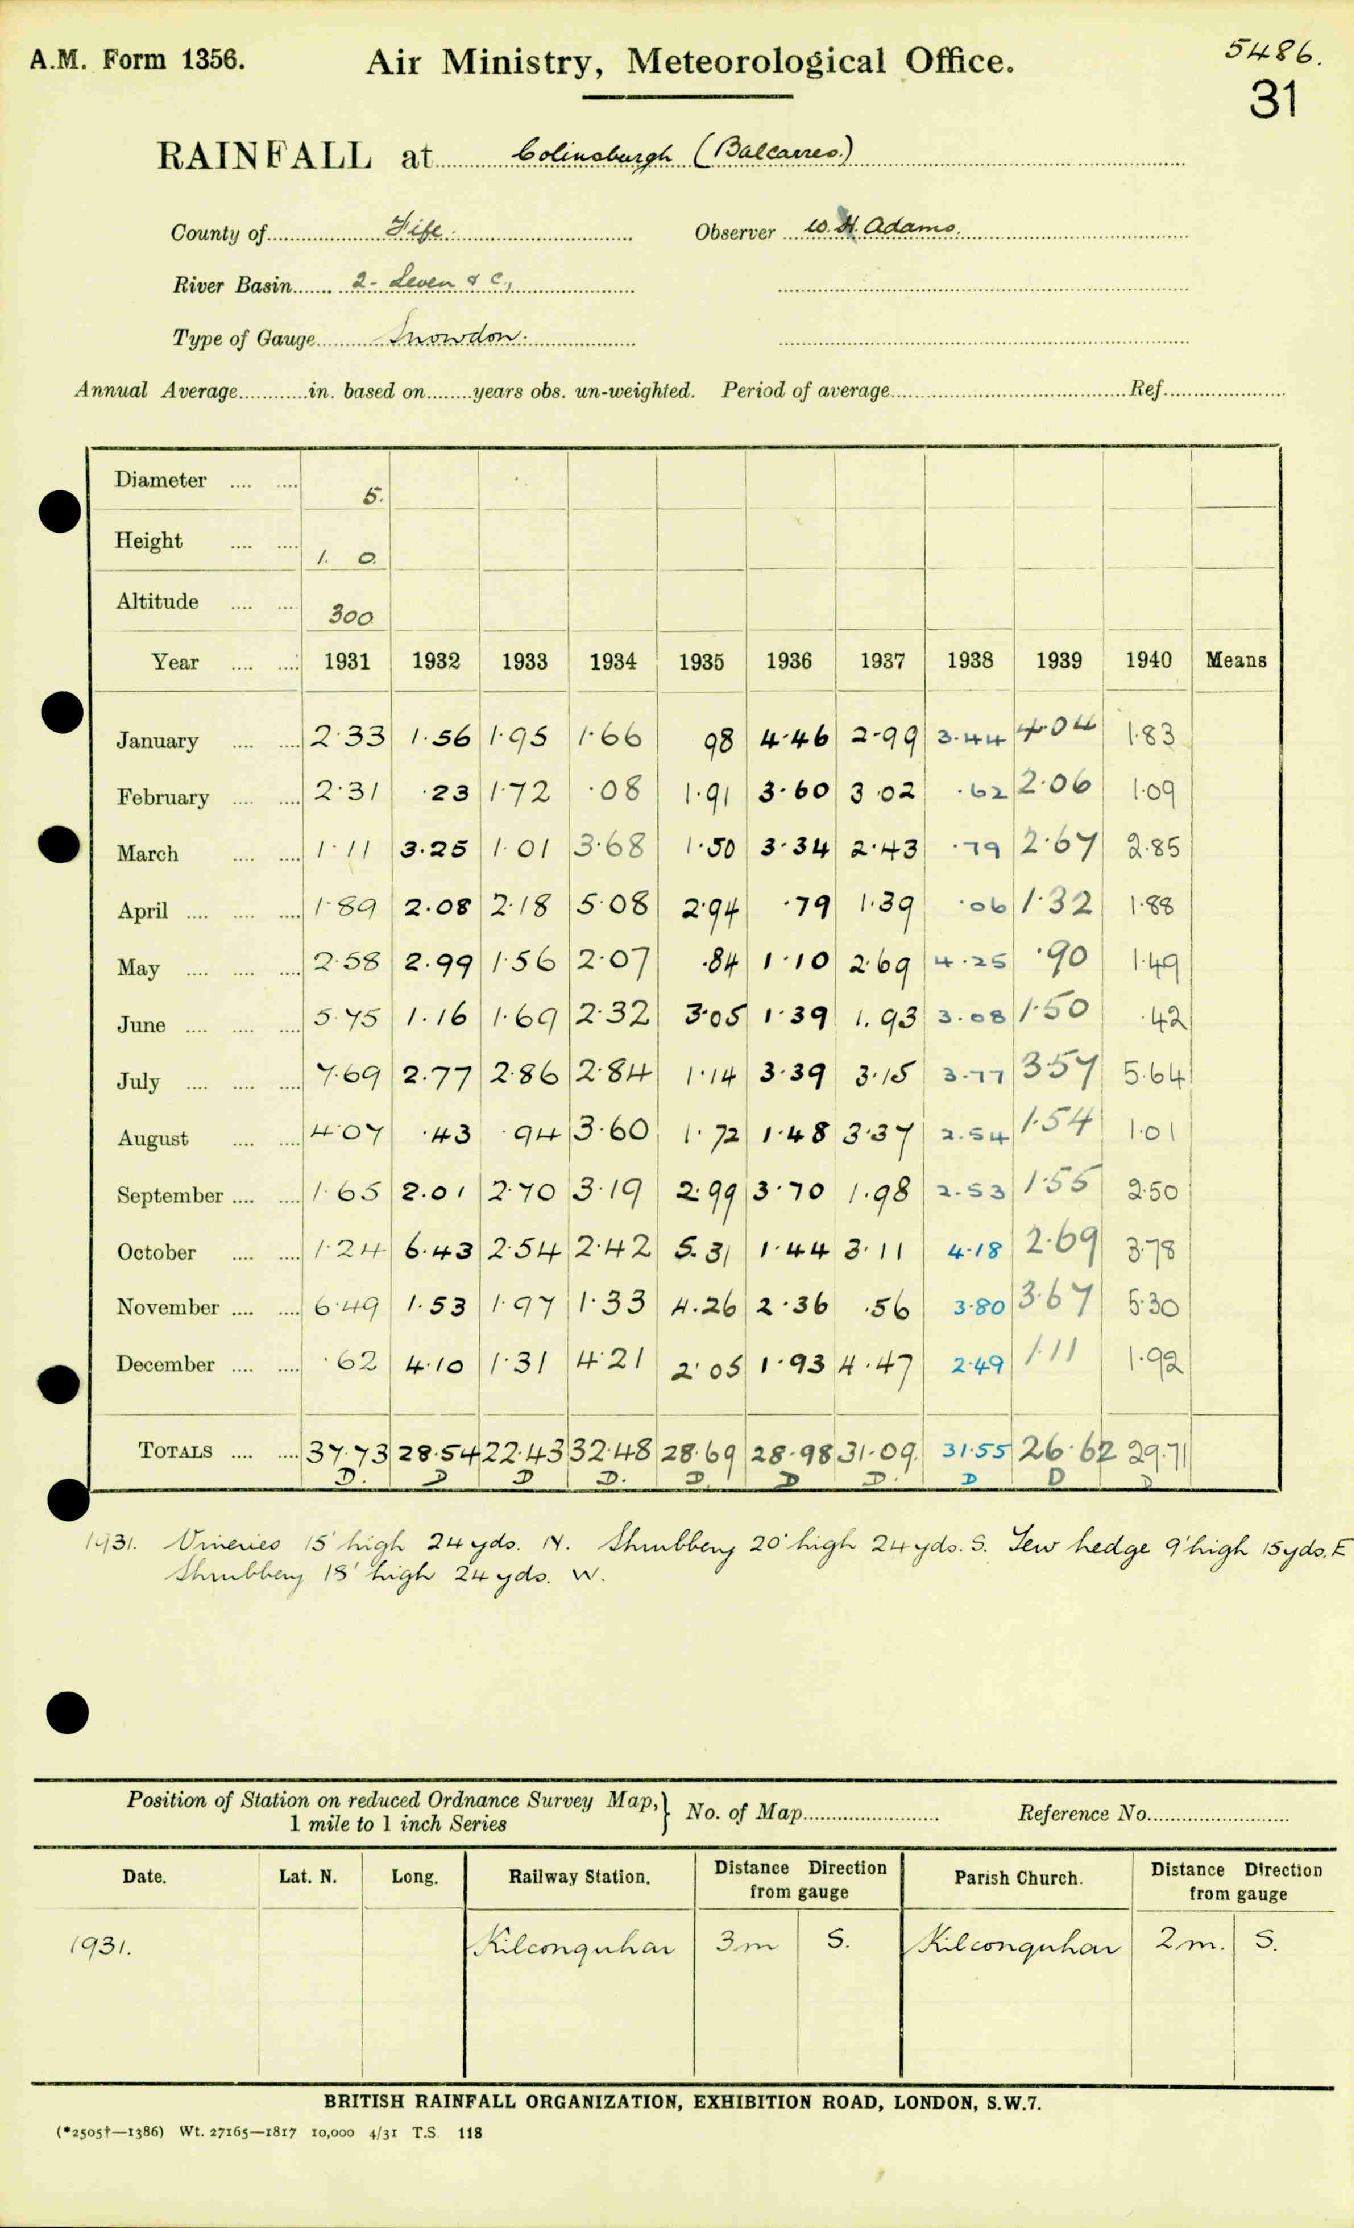 A.M. Form 1356. Air Ministry, Meteorological Office. 5486.
31
RAINFALL at Colinsburgh (Balcarres.)
County of Fife. Observer W. H. Adams.
River Basin 2 - Leven & C,
Type of Gauge Snowdon.
Annual Average in. based on years obs. un-weighted. Period of average Ref.
Diameter 5.
Height 1. 0.
Altitude 300
Year 1931 1932 1933 1934 1935 1936 1937 1938 1939 1940 Means
January 2.33 1.56 1.95 1.66 98 4.46 2.99 3.44 4.04 1.83
February 2.31 .23 1.72 .08 1.91 3.60 3.02 .62 2.06 1.09
March 1.11 3.25 1.01 3.68 1.50 3.34 2.43 .79 2.67 2.85
April 1.89 2.08 2.18 5.08 2.94 .79 1.39 .06 1.32 1.88
May 2.58 2.99 1.56 2.07 .84 1.10 2.69 4.25 .90 1.49
June 5.75 1.16 1.69 2.32 3.05 1.39 1.93 3.08 1.50 .42
July 7.69 2.77 2.86 2.84 1.14 3.39 3.15 3.77 3.57 5.64
August 4.07 .43 .94 3.60 1.72 1.48 3.37 2.54 1.54 1.01
September 1.65 2.01 2.70 3.19 2.99 3.70 1.98 2.53 1.55 2.50
October 1.24 6.43 2.54 2.42 5.31 1.44 3.11 4.18 2.69 3.78
November 6.49 1.53 1.97 1.33 4.26 2.36 .56 3.80 3.67 5.30
December .62 4.10 1.31 4.21 2.05 1.93 4.47 2.49 1.11 1.92
TOTALS 37.73 28.54 22.43 32.48 28.69 28.98 31.09. 31.55 26.62 29.71
D. D D D. D. D D. D D D
1931. Vineries 15' high 24 yds. N. Shrubbery 20' high 24 yds. S. Yew hedge 9' high 15 yds. E
Shrubbery 18' high 24 yds. W.
Position of Station on reduced Ordnance Survey Map, 1 mile to 1 inch Series } No. of Map Reference No.
Date. Lat. N. Long. Railway Station. Distance Direction from gauge Parish Church. Distance Direction from gauge
1931. Kilconquhar 3m S. Kilconquhar 2m. S.
BRITISH RAINFALL ORGANIZATION, EXHIBITION ROAD, LONDON, S.W.7.
(*2505†—1386) Wt. 27165—1817 10,000 4/31 T.S. 118